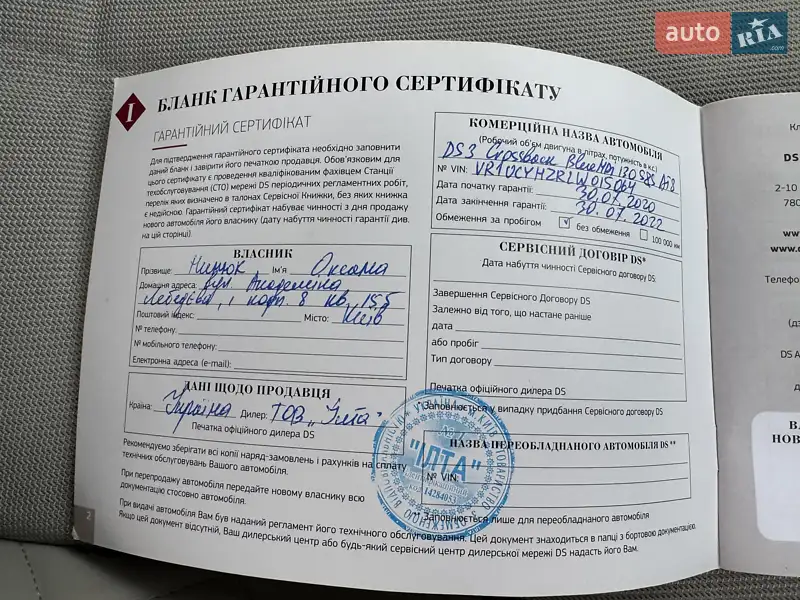 auto RIA .com
I
БЛАНК ГАРАНТІЙНОГО СЕРТИФІКАТУ
ГАРАНТІЙНИЙ СЕРТИФІКАТ
Для підтвердження гарантійного сертифіката необхідно заповнити
даний бланк і завірити його печаткою продавця. Обов'язковим для
цього сертифікату є проведення кваліфікованим фахівцем Станції
техобслуговування (СТО) мережі DS періодичних регламентних робіт,
перелік яких визначено в талонах Сервісної Книжки, без яких книжка
є недійсною. Гарантійний сертифікат набуває чинності з дня продажу
нового автомобіля його власнику (дату набуття чинності гарантії див.
на цій сторінці).
ВЛАСНИК
Прізвище: Ім'я Оксана
Домашня адреса: вул. Академіка
1 корп. 8 кв. 155
Поштовий індекс: Місто: Київ
№ телефону:
№ мобільного телефону:
Електронна адреса (e-mail):
ДАНІ ЩОДО ПРОДАВЦЯ
Країна: Україна Дилер: ТОВ „Ілта"
Печатка офіційного дилера DS
Рекомендуємо зберігати всі копії наряд-замовлень і рахунків на сплату
технічних обслуговувань Вашого автомобіля.
При перепродажу автомобіля передайте новому власнику всю
документацію стосовно автомобіля.
При видачі автомобіля Вам був наданий регламент його технічного обслуговування. Цей документ знаходиться в папці з бортовою документацією.
Якщо цей документ відсутній, Ваш дилерський центр або будь-який сервісний центр дилерської мережі DS надасть його Вам.
2
КОМЕРЦІЙНА НАЗВА АВТОМОБІЛЯ
(Робочий об'єм двигуна в літрах, потужність в к.с.)
DS3 Crossback BlueHDi 130 S&S At8
№ VIN: VR1UCYHZRLW015064
Дата початку гарантії: 30.07.2020
Дата закінчення гарантії: 30.07.2022
Обмеження за пробігом √ без обмеження 100 000 км
СЕРВІСНИЙ ДОГОВІР DS*
Дата набуття чинності Сервісного договору DS
Завершення Сервісного Договору DS
Залежно від того, що настане раніше
дата
або пробіг
Тип договору
Печатка офіційного дилера DS
*Заповнюється у випадку придбання Сервісного договору DS
НАЗВА ПЕРЕОБЛАДНАНОГО АВТОМОБІЛЯ DS **
№ VIN:
** Заповнюється лише для переобладнаного автомобіля
"ІЛТА"
14284053
DS
2-10
Телефо
DS A